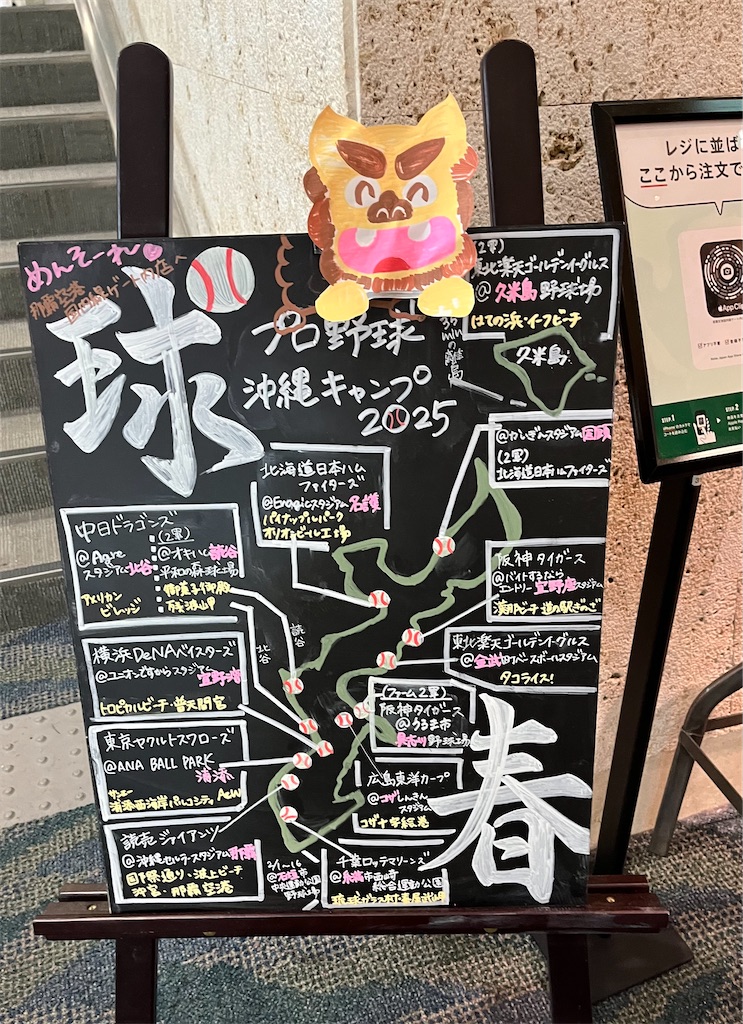 めんそーれ
那覇空港
国内線ゲート内店へ
球春
プロ野球
沖縄キャンプ
2025
(2軍)
東北楽天ゴールデンイーグルス
@久米島野球場
はての浜・イーフビーチ
35minの離島
久米島
@かいぎんスタジアム国頭
(2軍)
北海道日本ハムファイターズ
北海道日本ハム
ファイターズ
@Enagicスタジアム名護
パイナップルパーク
オリオンビール工場
中日ドラゴンズ
@Agre
スタジアム北谷
アメリカン
ビレッジ
(2軍)
@オキハム読谷
平和の森球場
御菓子御殿
残波岬
北谷
読谷
阪神タイガース
@バイトするなら
エントリー宜野座スタジアム
漢那ビーチ 道の駅ぎのざ
横浜DeNAベイスターズ
@ユニオンですからスタジアム
宜野湾
トロピカルビーチ・普天間宮
東北楽天ゴールデンイーグルス
@金武町ベースボールスタジアム
タコライス!
(ファーム2軍)
阪神タイガース
@うるま市
具志川野球場
東京ヤクルトスワローズ
@ANA BALL PARK
浦添
サンエー
浦添西海岸パルコシティ
広島東洋カープ
@コザしんきん
スタジアム
コザ十字絵巻
読売ジャイアンツ
@沖縄セルラースタジアム那覇
国際通り・波上ビーチ
沖宮・那覇空港
2/1〜16
@石垣市
中央運動公園
野球場
千葉ロッテマリーンズ
@糸満市西崎
総合運動公園
琉球ガラス村・喜屋武岬
レジに並ば
ここから注文で
App Clip
STEP.1
STEP.2